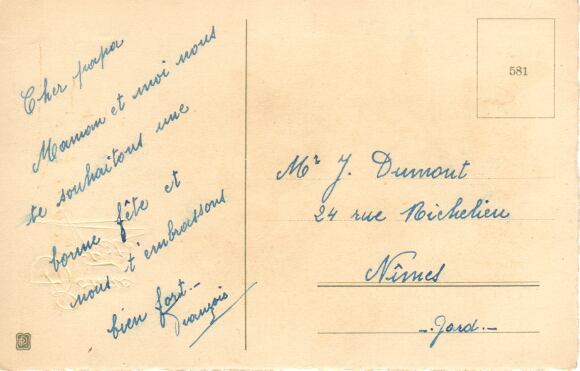 Cher papa
Maman et moi nous
te souhaitons une
bonne fête et
nous t'embrassons
bien fort.-
François
581
Mr J. Dumont
24 rue Richelieu
Nîmes
-. Gard.-